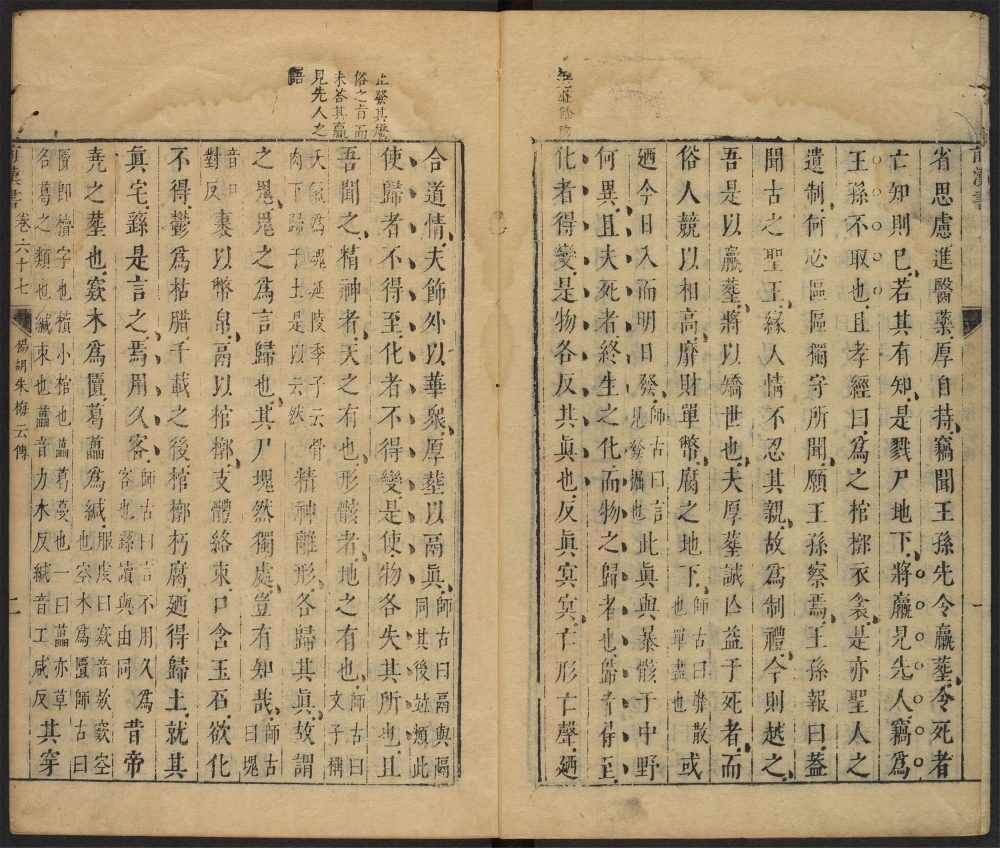 省思慮進醫藥厚自持竊聞王孫先令羸葬令死者
亡知則已若其有知是戮尸地下將羸見先人竊爲
王孫不取也且孝經曰爲之棺槨衣衾是亦聖人之
遺制何必區區獨守所聞願王孫察焉王孫報曰蓋
聞古之聖王緣人情不忍其親故爲制禮今則越之
吾是以羸葬將以矯世也夫厚葬誠亾益于死者而
俗人競以相高靡財單幣腐之地下師古曰靡散也單盡也或
廼今日入而明日發師古曰言見發掘也此眞與暴骸于中野
何異且夫死者終生之化而物之歸者也歸者得至
化者得變是物各反其眞也反眞冥冥亡形亡聲廼
一
止發其矯
俗之旨而
未答其羸
見先人之
語
合道情夫飾外以華衆厚葬以鬲眞師古曰鬲與隔同其後竝類此
使歸者不得至化者不得變是使物各失其所也且
吾聞之精神者天之有也形骸者地之有也師古曰文子稱
天氣爲魂延陵季子云骨肉下歸于土是以云然精神離形各歸其眞故謂
之鬼鬼之爲言歸也其尸塊然獨處豈有知哉師古曰塊
音口對反裹以幣帛鬲以棺槨支體絡束口含玉石欲化
不得鬱爲枯腊千載之後棺槨朽腐廼得歸土就其
眞宅繇是言之焉用久客師古曰言不用久爲客也繇讀與由同昔帝
堯之葬也窾木爲匵葛藟爲緘服虔曰窾音款窾空也空木爲匵師古曰
匵卽櫝字也櫝小棺也藟葛蔓也一曰藟亦草名葛之類也緘束也藟音力水反緘音工咸反其穿
前漢書 卷六十七 楊胡朱梅云傳 二